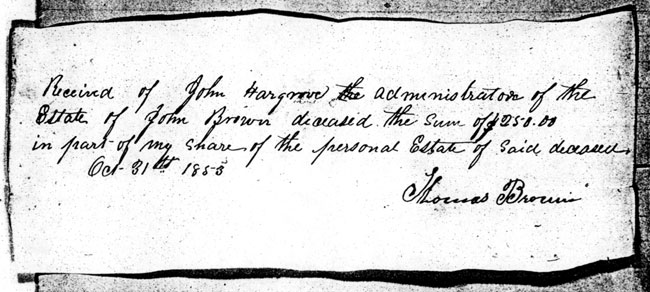 Received of John Hargrove the administrator of the
Estate of John Brown deceased the sum of $250.00
in part of my share of the personal Estate of said deceased
Oct 31st 1853
Thomas Brown